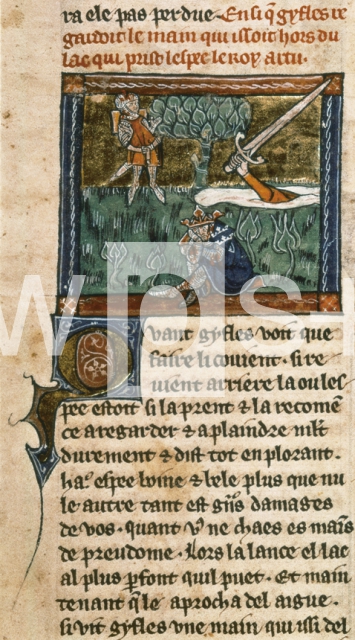 ra ele pas perdue · Ensi q̄ gyfles re
gardoit le main qui issoit hors du
lac qui prist lespee le roy artu ·
Quant gyfles voit que
faire li couient · si re
uient arriere la ou les
pee estoit si la prent & la recomē
ce a regarder & a plaindre mlt
durement & dist tot en plorant ·
ha · espee boine & bele plus que nu
le autre tant est grās damages
de vos · quant vꝰ ne chaes es mains
de preudome · Lors la lance el lac
al plus parfont quil puet · Et main
tenant q̄le aprocha del aigue ·
si vit gyfles vne main qui issi del